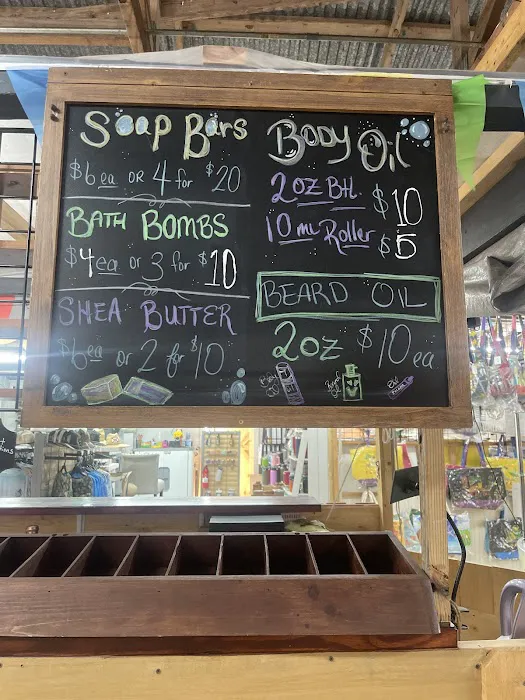 Soap Bars
$6 ea OR 4 for $20
BATH BOMBS
$4 ea or 3 for $10
SHEA BUTTER
$6 ea or 2 for $10
BODY Oil
2oz Btl. $10
10 mL Roller $5
BEARD OIL
2oz $10 ea